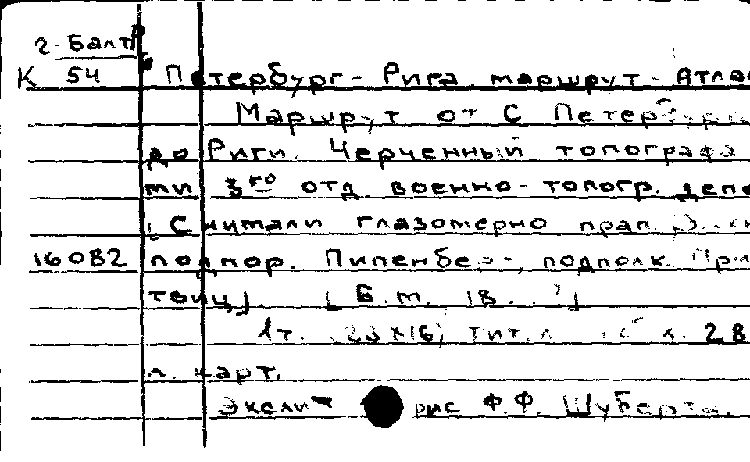 г. Балт
К 54 Петербург - Рига маршрут. Атлас
Маршрут от С Петерб
до Риги. Черченный топографа
ми 3го отд. военно-топогр. депо
[Снимали глазомерно прап.
16082 подпор. Пипенбер, подполк.
твиц]. [Б.м., 18
1т. (23×16) тит.л. л. 28
л. карт.
Экслибрис Ф.Ф. Шуберта.